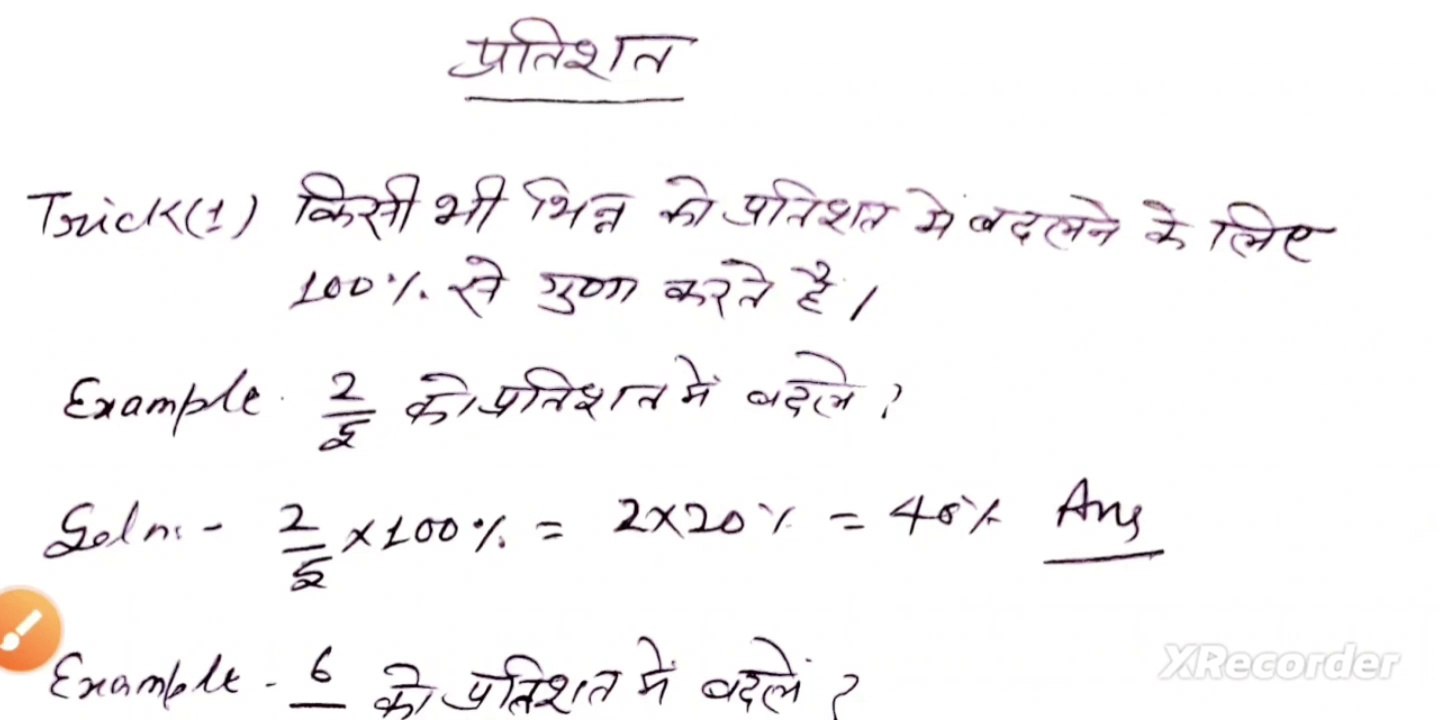 प्रतिशत
Trick(1) किसी भी भिन्न को प्रतिशत में बदलने के लिए
100% से गुणा करते है।
Example. 2/5 को प्रतिशत में बदले ?
Soln:- 2/5 ×100% = 2×20% = 40% Ans
Example - 6 को प्रतिशत में बदलें ?
XRecorder